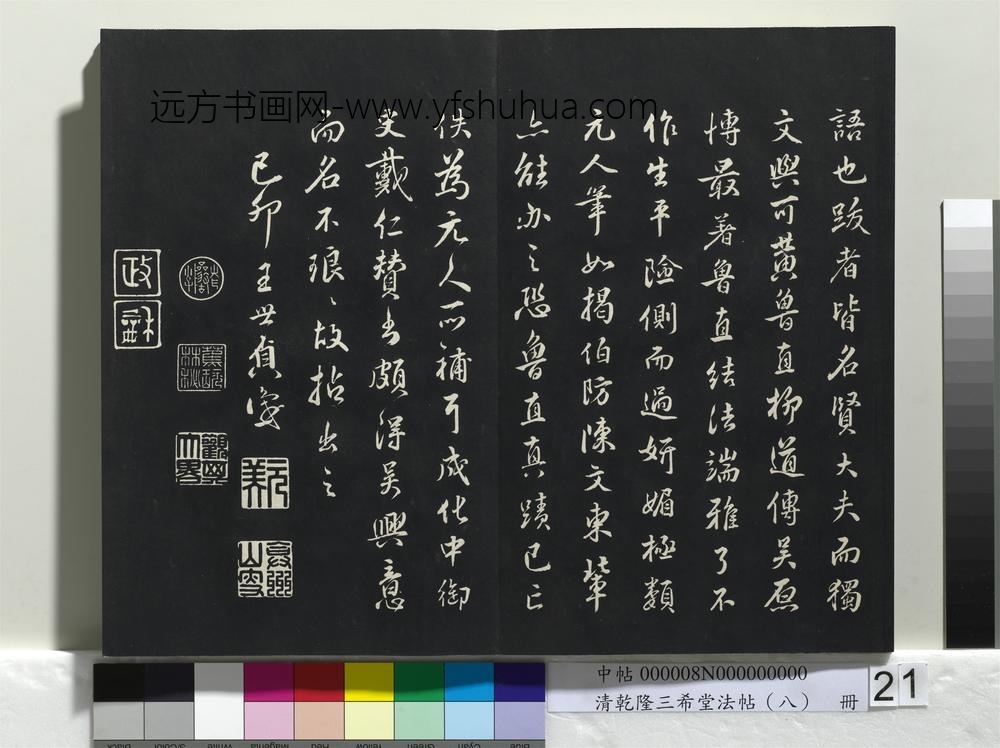 語也跋者皆名賢大夫而獨
文與可黃魯直柳道傳吳原
博最著魯直結法端雅了不
作生平險側而過妍媚極類
元人筆如揭伯防陳文東輩
亦能办之恐魯直真蹟已亡
佚為元人所補耳成化中御
史戴仁贊書頗得吳興意
而名不琅〻故拈出之
己卯王世貞
觀
遠方书画网-www.yfshuhua.com
中帖 000008N000000000
清乾隆三希堂法帖（八） 冊
21
Black
3/Color
White
Magenta
Red
Yellow
Green
Cyan
Blue